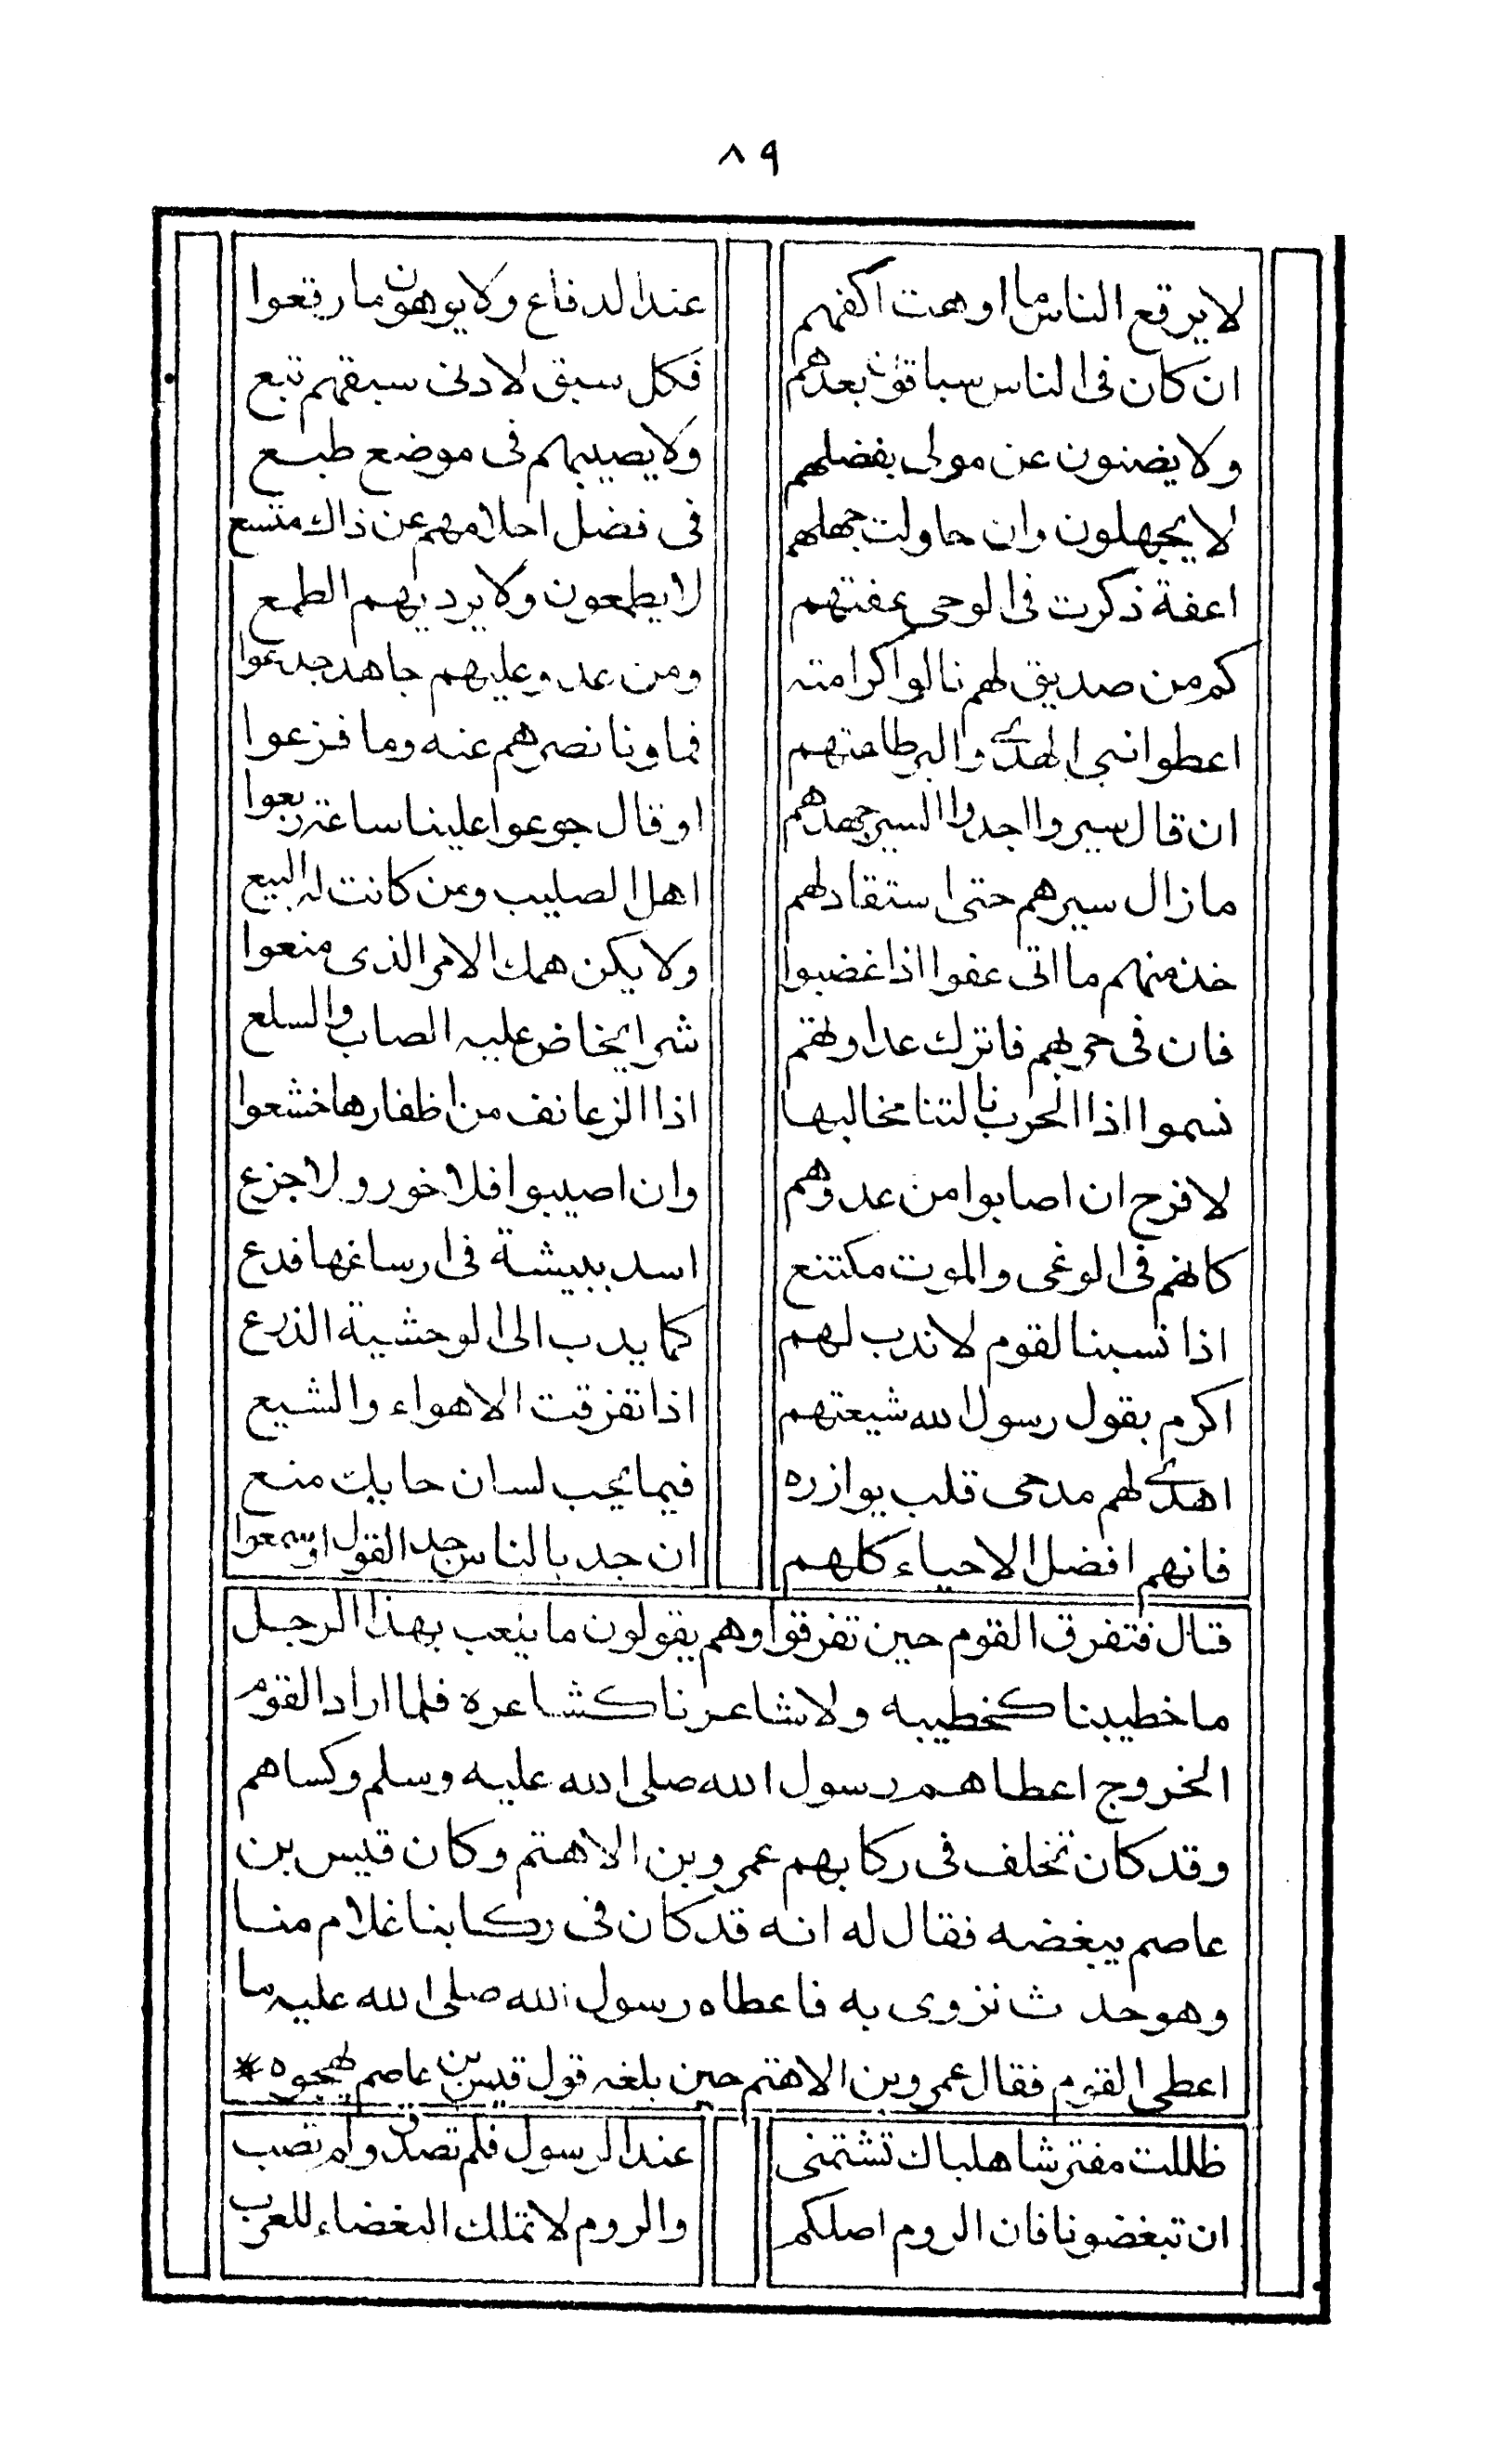 ٨٩
لا يرقع الناس ما اوهت اكفهم عند الدفاع ولا يوهون ما رقعوا
ان كان فى الناس سباقون بعدهم فكل سبق لادنى سبقهم تبع
ولا يضنون عن مولى بفضلهم ولا يصيبهم فى موضع طبع
لا يجهلون وان حاولت جهلهم فى فضل احلامهم عن ذاك متسع
اعفة ذكرت فى الوحى عفتهم لا يطمعون ولا يرديهم الطمع
كم من صديق لهم نالوا كرامته ومن عدو عليهم جاهد جدعوا
اعطوا نبى الهدى والبر طاعتهم فما ونا نصرهم عنه وما فزعوا
ان قال سيروا اجدوا السير جهدهم او قال جوعوا علينا ساعة ربعوا
ما زال سيرهم حتى استقاد لهم اهل الصليب ومن كانت له البيع
خذ منهم ما اتى عفوا اذا غضبوا ولا يكن همك الامر الذى منعوا
فان فى حربهم فاترك عداوتهم شرا يخاض عليه الصاب والسلع
نسموا اذا الحرب نالتنا مخالبها اذا الزعانف من اظفارها خشعوا
لا فرح ان اصابوا من عدوهم وان اصيبوا فلا خور ولا جزع
كانهم فى الوغى والموت مكتنع اسد ببيشة فى ارساغها فدع
اذا نسبنا لقوم لا ندب لهم كما يدب الى الوحشية الذرع
اكرم بقول رسول الله شيعتهم اذا تفرقت الاهواء والشيع
اهدى لهم مدحى قلب يوازره فيما يحب لسان حايك منع
فانهم افضل الاحياء كلهم ان جد بالناس جد القول او سمعوا
قال فتفرق القوم حين تفرقوا وهم يقولون ما ينعب بهذا الرجل
ما خطيبنا كخطيبه ولا شاعرنا كشاعره فلما اراد القوم
الخروج اعطاهم رسول الله صلى الله عليه وسلم وكساهم
وقد كان تخلف فى ركابهم عمرو بن الاهتم وكان قيس بن
عاصم يبغضه فقال له انه قد كان فى ركابنا غلام منا
وهو حدث نزوى به فاعطاه رسول الله صلى الله عليه ما
اعطى القوم فقال عمرو بن الاهتم حين بلغه قول قيس بن عاصم يهجوه *
ظللت مفترشا هلباك تشتمنى عند الرسول فلم تصدق ولم تصب
ان تبغضونا فان الروم اصلكم والروم لا تملك البغضاء للعرب